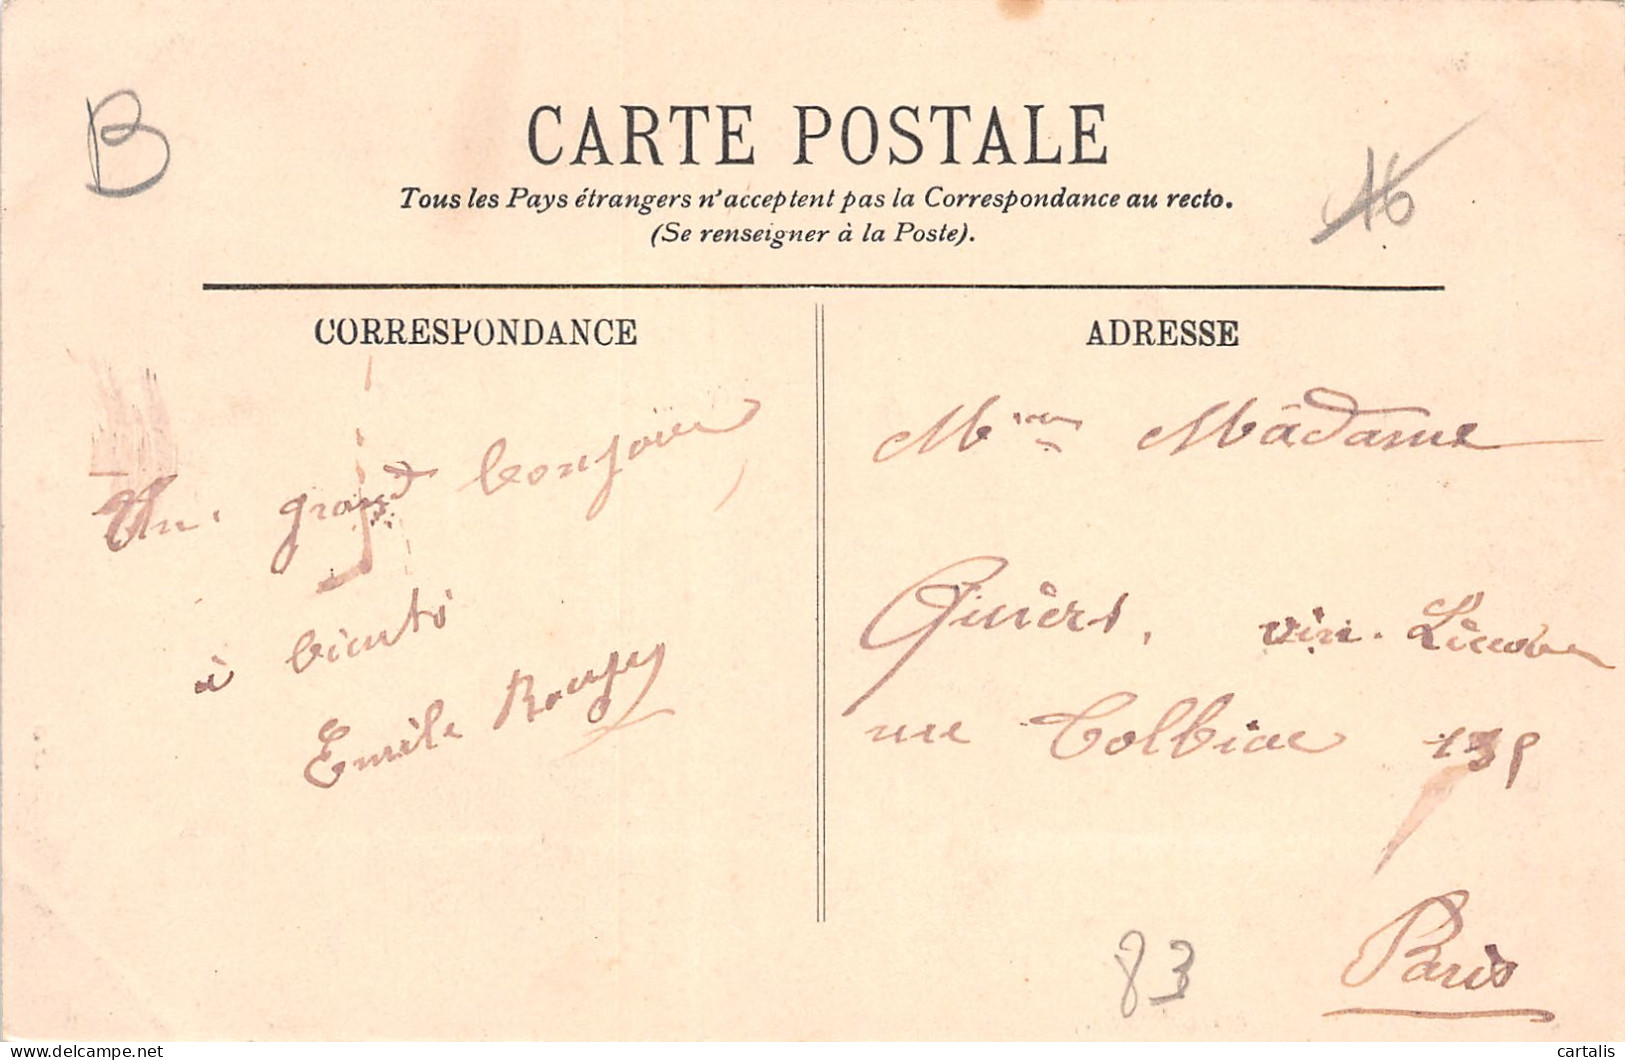 B
CARTE POSTALE
16
Tous les Pays étrangers n'acceptent pas la Correspondance au recto.
(Se renseigner à la Poste).
CORRESPONDANCE
Un grand bonjour
à bientô
Emile
ADRESSE
Mme Madame
vin.
rue Tolbiac
Paris
83
delcampe.net
cartalis